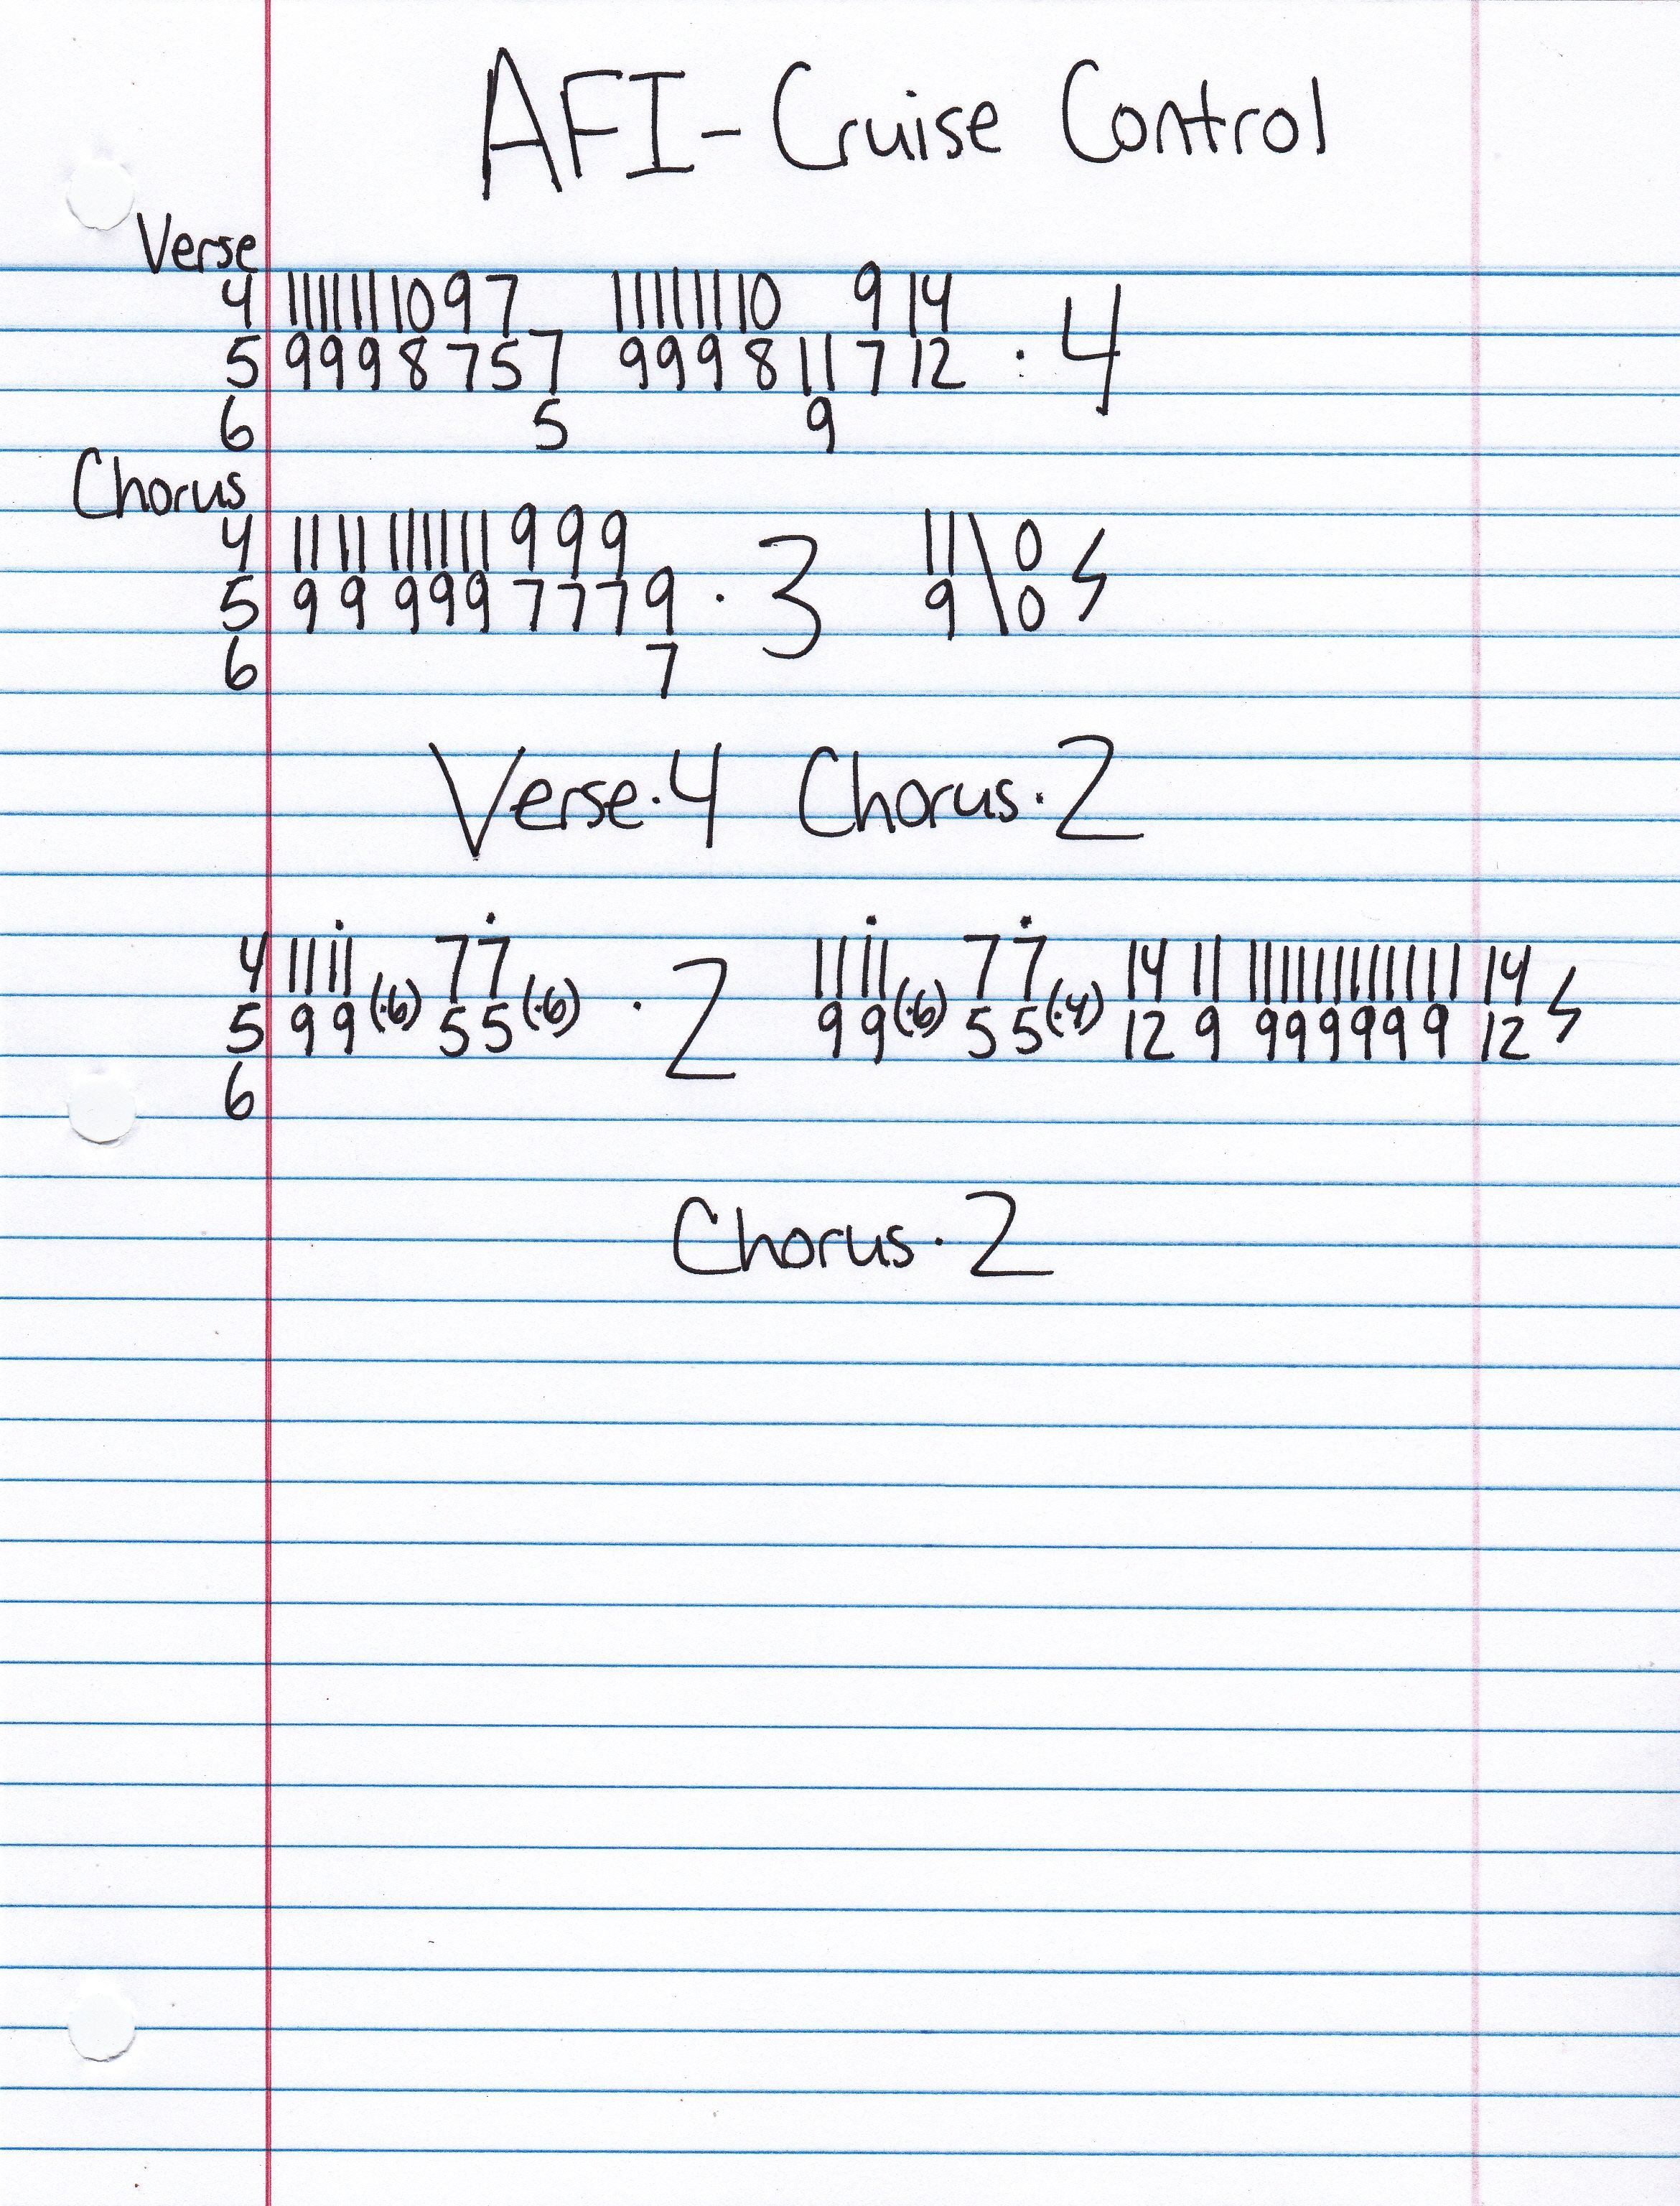 AFI - Cruise Control
Verse
4 11 11 11 10 9 7 11 11 11 10 9 14
5 9 9 9 8 7 5 7 9 9 9 8 11 7 12 · 4
6 5 9
Chorus
4 11 11 11 11 11 9 9 9 11 \ 0
5 9 9 9 9 9 7 7 7 9 · 3 9 \ 0
6 7
Verse · 4 Chorus · 2
4 11 11 7 7 11 11 7 7 14 11 11 11 11 11 11 11 14
5 9 9 (·6) 5 5 (·6) · 2 9 9 (·6) 5 5 (·4) 12 9 9 9 9 9 9 9 12
6
Chorus · 2